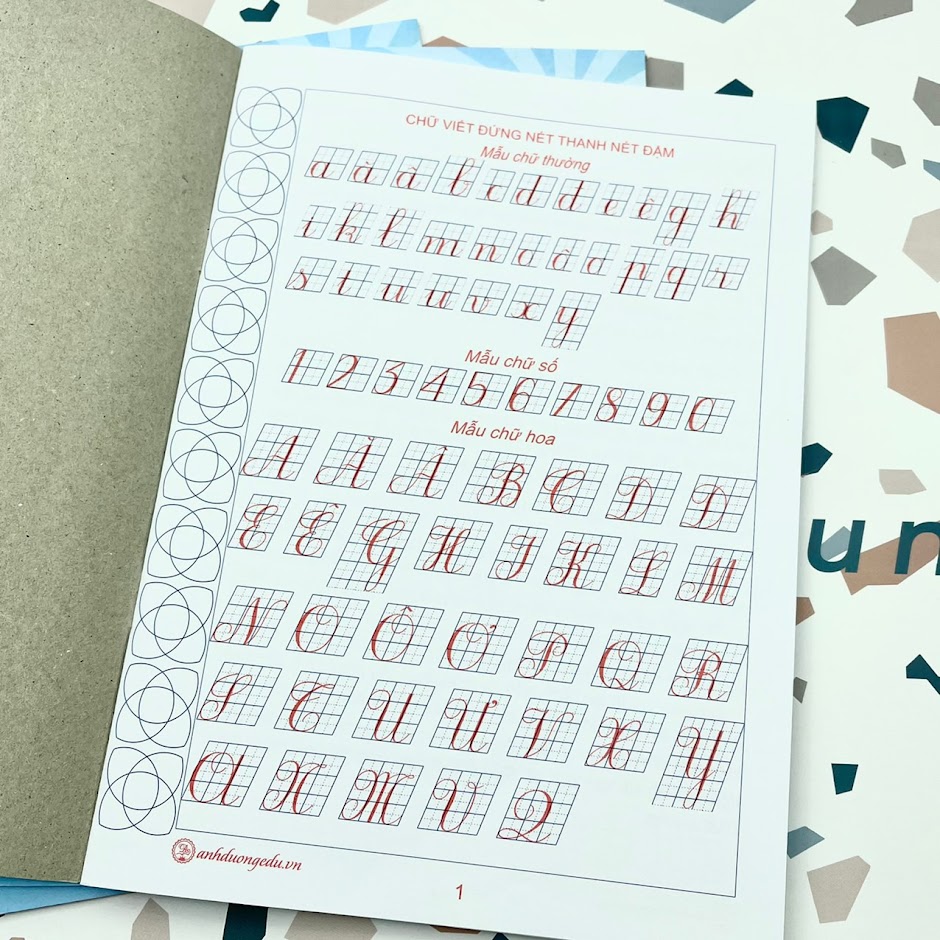 CHỮ VIẾT ĐỨNG NÉT THANH NÉT ĐẬM
Mẫu chữ thường
a ă â b c d đ e ê g h
i k l m n o ô ơ p q r
s t u ư v x y
Mẫu chữ số
1 2 3 4 5 6 7 8 9 0
Mẫu chữ hoa
A Ă Â B C D Đ
E Ê G H I K L M
N O Ô Ơ P Q R
S T U Ư V X Y
A N M V Q
anhduongedu.vn
1